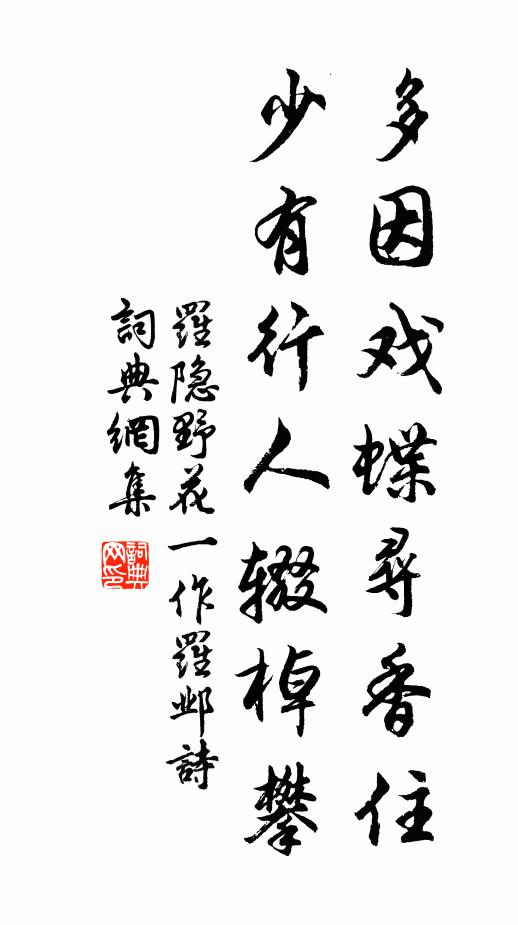 多因戏蝶尋香住
少有行人辍棹攀
羅隐野花一作羅邺詩
詞典網集
詞典网印